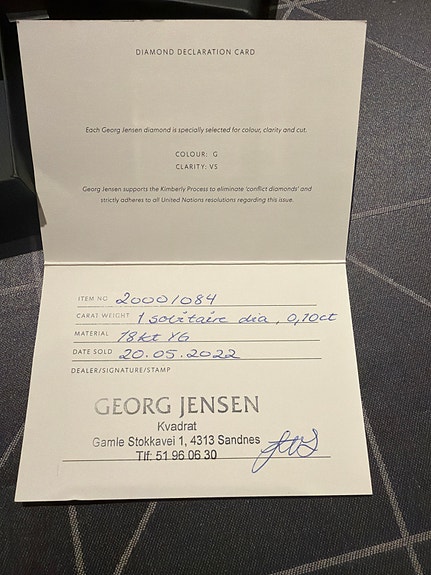 DIAMOND DECLARATION CARD
Each Georg Jensen diamond is specially selected for colour, clarity and cut.
COLOUR: G
CLARITY: VS
Georg Jensen supports the Kimberly Process to eliminate 'conflict diamonds' and
strictly adheres to all United Nations resolutions regarding this issue.
ITEM NO 20001084
CARAT WEIGHT 1 solitaire dia, 0,10ct
MATERIAL 18kt YG
DATE SOLD 20.05.2022
DEALER/SIGNATURE/STAMP
GEORG JENSEN
Kvadrat
Gamle Stokkavei 1, 4313 Sandnes
Tlf: 51 96 06 30